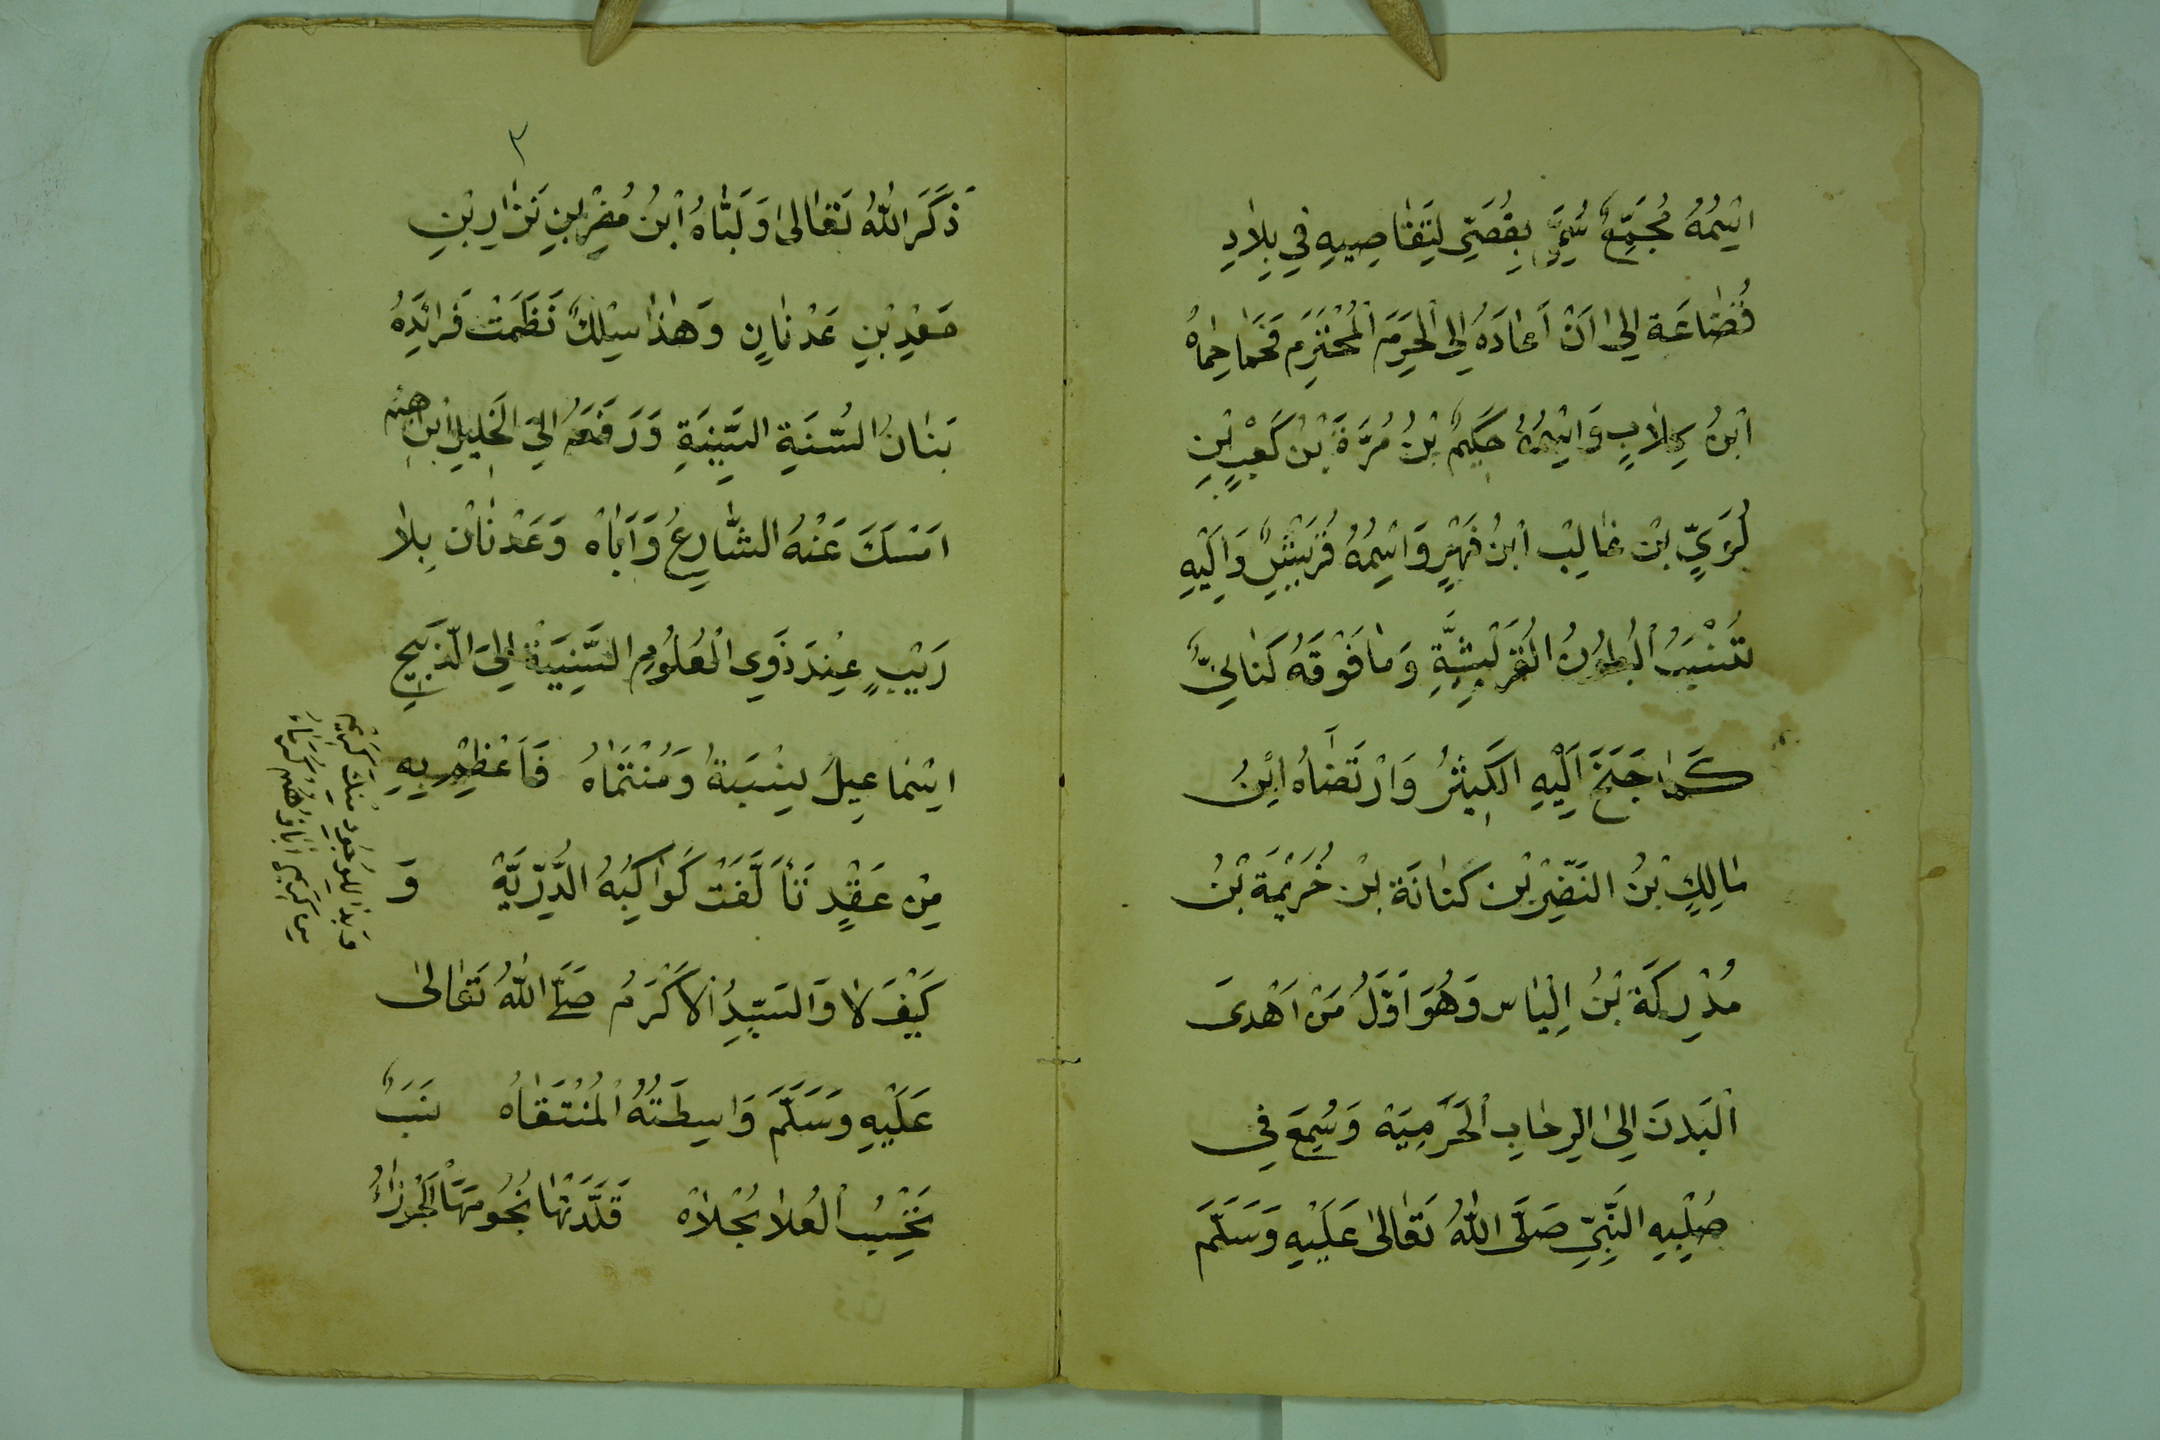 اِسْمُهُ مُجَمِّعٌ سُمِّيَ بِقُصَيٍّ لِتَقَاصِيهِ فِي بِلَادِ
قُضَاعَة اِلَى اَنْ اَعَادَهُ اِلَى الْحَرَمِ الْمُحْتَرَمِ فَحَمَا حِمَاهُ
اِبْنُ كِلَابٍ وَاسْمُهُ حَكِيمٌ بْنُ مُرَّةَ بْنُ كَعْبٍ بْنِ
لُوَيِّ بْن غَالِبْ اِبْنُ فِهْرٍ وَاسْمُهُ قُرَيْشٌ وَاِلَيْهِ
تُنْسَبُ الْبُطُونُ الْقُرَيْشِيَّةِ وَمَا فَوْقَهُ كَنَانِيٌّ
كَمَا جَنَحَ اِلَيْهِ الكَثِيرُ وَارْتَضَاهُ اِبْنُ
مَالِكٍ بْنُ النَّضْرِ بْن كَنَانَة بْن خُزَيْمَة بْنُ
مُدْرِكَة بْنُ اِلْيَاس وَهُوَ اَوَّلُ مَنْ اَهْدَى
الْبَدنَ اِلَى الرِحَابِ الْحَرَمِيَة وَسُمِعَ فِي
صُلْبِهِ النَّبِيّ صَلَّى اللهُ تَعَالَى عَلَيْهِ وَسَلَّمَ
٣
ذَكَرَ اللهُ تَعَالَى وَلَبَّاهُ اِبْنُ مُضَرِ بْنِ نَزَارِ بْنِ
مَعْدِ بْنِ عَدْنَانٍ وَهٰذَا سِلْكٌ نَظَمَتْ فَرَائِدَهُ
بَنَانُ السُّنَةِ السَّنِيَةِ وَرَفَعَهُ اِلَى الْخَلِيلِ اِبْرَاهِيم
اَمْسَكَ عَنْهُ الشَّارِعُ وَاَبَاهْ وَعَدْنَانْ بِلَا
رَيْبٍ عِنْدَ ذَوِي الْعُلُومِ السَّنِيَةْ اِلَى الذَّبِيحِ
اِسْمَاعِيلُ نِسْبَةُ وَمُنْتَمَاهُ فَاَعْظِمْ بِهِ
مِنْ عَقْدٍ تَاَلَّفَتْ كَوَاكِبُهُ الدُّرِّيَّةْ وَ
كَيْفَ لَا وَالسَيِّدُ الْاَكْرَمُ صَلَّى اللهُ تَعَالَى
عَلَيْهِ وَسَلَّمَ وَاسِطَتُهُ الْمُنْتَقَاهُ نَسَبٌ
تَحْسِبُ الْعُلَا بُحْلَاهْ قَلَّدَتْهَا نُجُومَهَا الْجَوْزَاءُ
وَبَدَا لِلْوُجُودِ مِنْكَ كَرِيم
مِن كَرِيمٍ اٰبَاؤُهُ كُرَمَاءُ